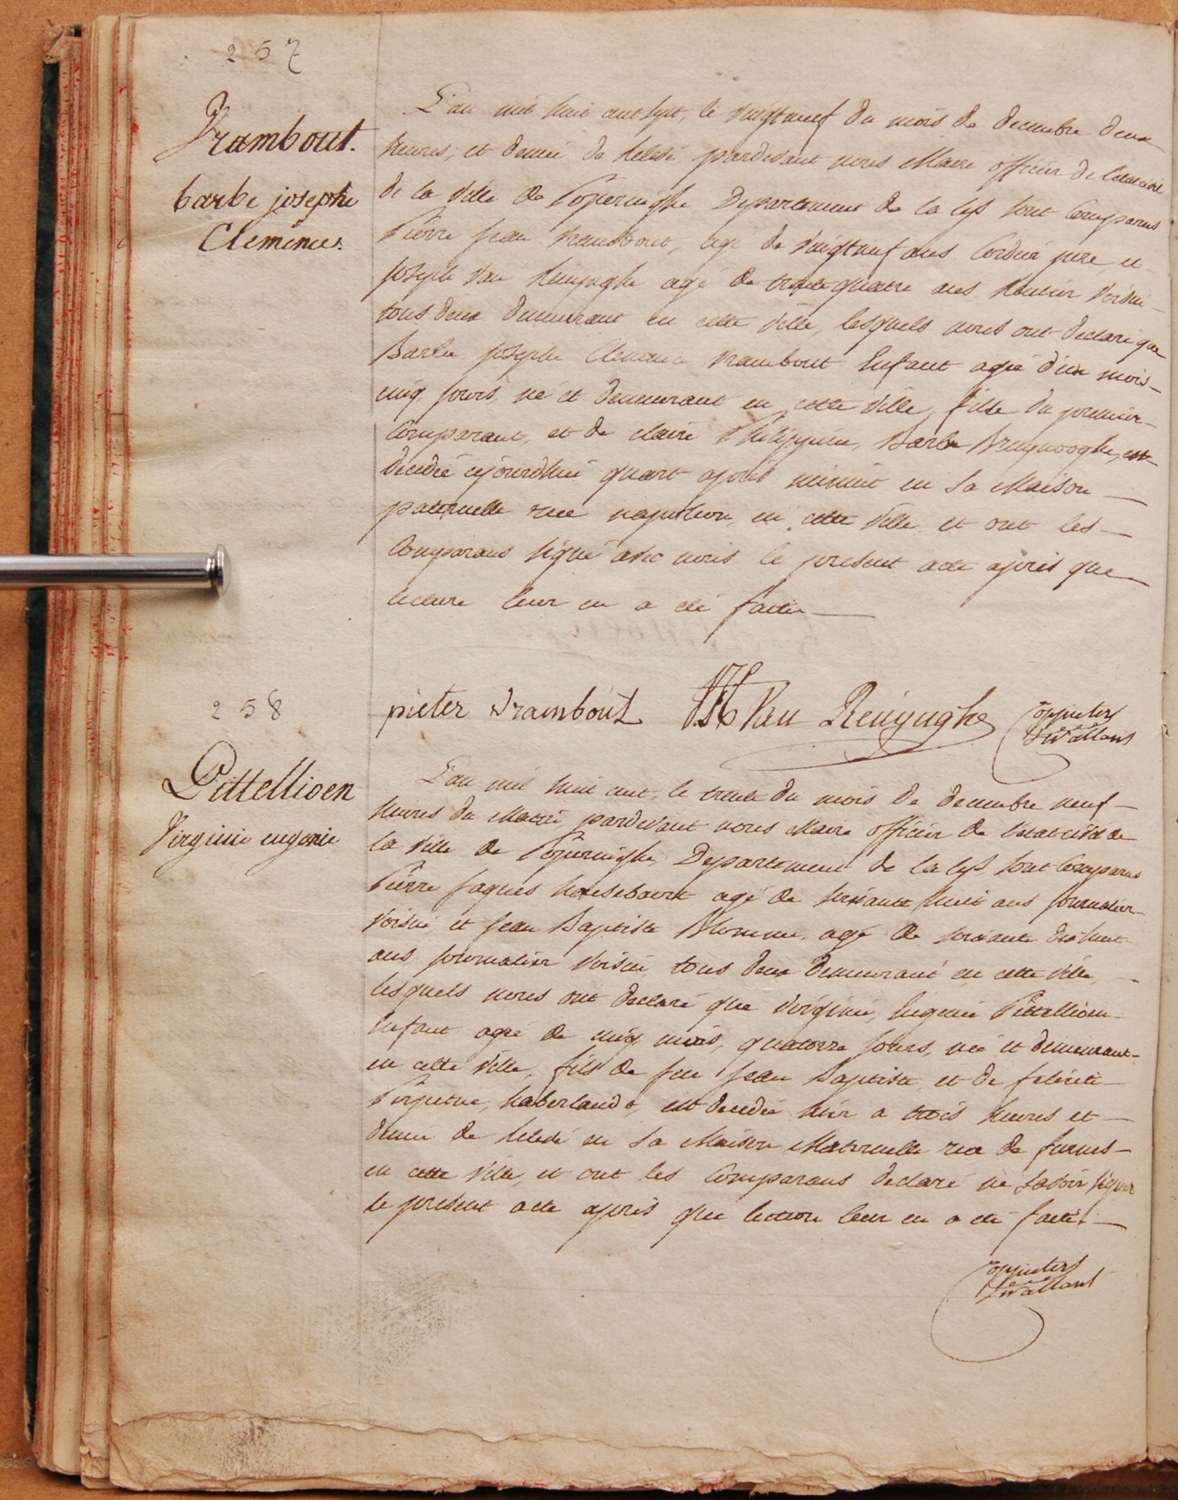 257
Vrambout.
barbe josephe
Clemence.
L'an mil huit cent sept, le vingt neuf du mois de decembre deux
heures, et demie de relevé pardevant nous Maire officier de l'etat civil
de la ville de Poperinghe Departement de la lys sont Comparus
Pierre Jean Vrambout, agé de vingt neuf ans Cordier pere et
joseph Van Renynghe agé de trente quatre ans voisin
tous deux demeurant en cette ville, lesquels nous ont declaré que
Barbe Josephe Clemence Vrambout Enfant agée d'un mois
cinq jours né et demeurant en cette ville, fille du premier
Comparant, et de claire Philippine, Barbe Bruynooghe, est
decedée cejourdhui quart apres minuit en sa Maison
paternelle rue napoleon en cette ville et ont les
Comparans signé avec nous le present acte apres que
lecture leur en a eté faite
pieter vrambout Van Renÿnghe
258
Pittellioen
Virginie eugenie
L'an mil huit cent, le trente du mois de decembre neuf
heures du Matin pardevant nous Maire officier de l'etat civil de
la ville de Poperinghe Departement de la lys sont Comparus
Pierre Jaques agé de soixante huit ans journalier
voisin et Jean Baptiste Blomme, agé de soixante dix huit
ans journalier voisin tous deux demeurant en cette ville,
lesquels nous ont declaré que Virginie, Eugenie Pittellioen
Enfant agée de cinq mois, quatorze jours, né et demeurant
en cette ville, fils de feu Jean Baptiste et de felicité
Perpetue, haberlandt, est decedée hier a trois heures et
demie de relevé en sa Maison Maternelle rue de furnes
en cette ville, et ont les Comparans declaré ne savoir signer
le present acte apres que lecture leur en a eté faite.